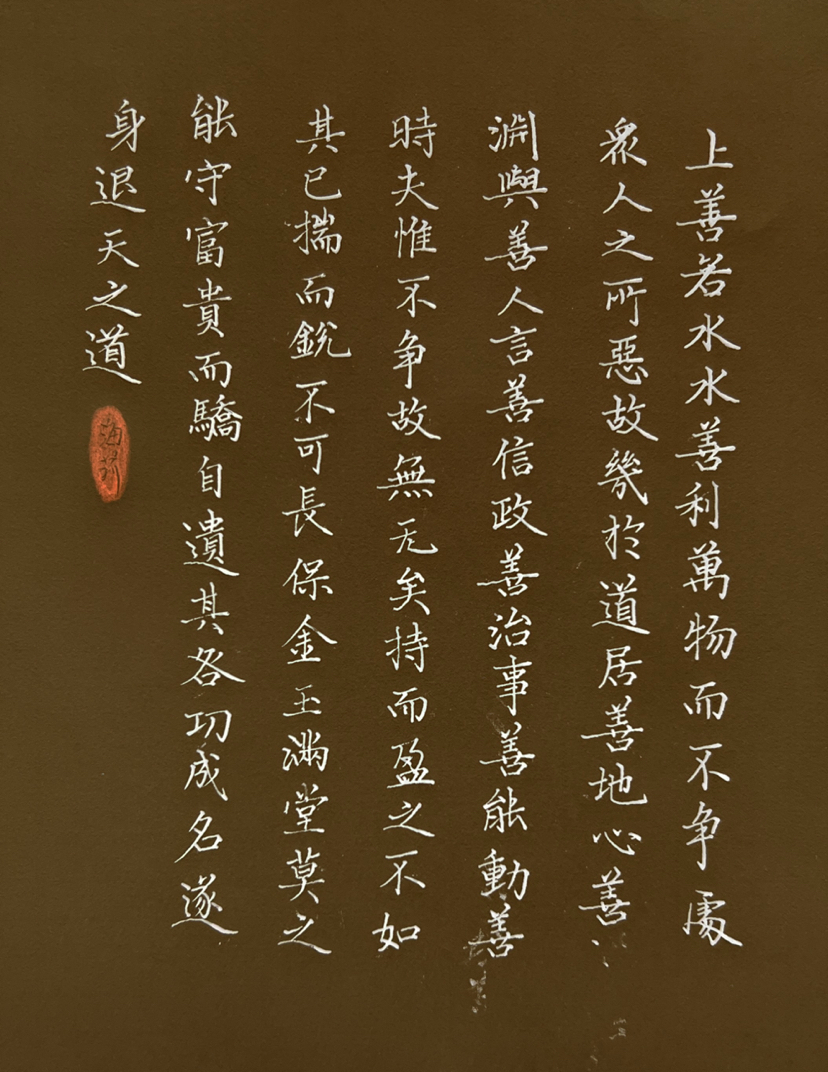 上善若水水善利萬物而不争處
衆人之所惡故幾於道居善地心善
淵與善人言善信政善治事善能動善
時夫惟不争故無尤矣持而盈之不如
其已揣而銳不可長保金玉滿堂莫之
能守富貴而驕自遺其咎功成名遂
身退天之道